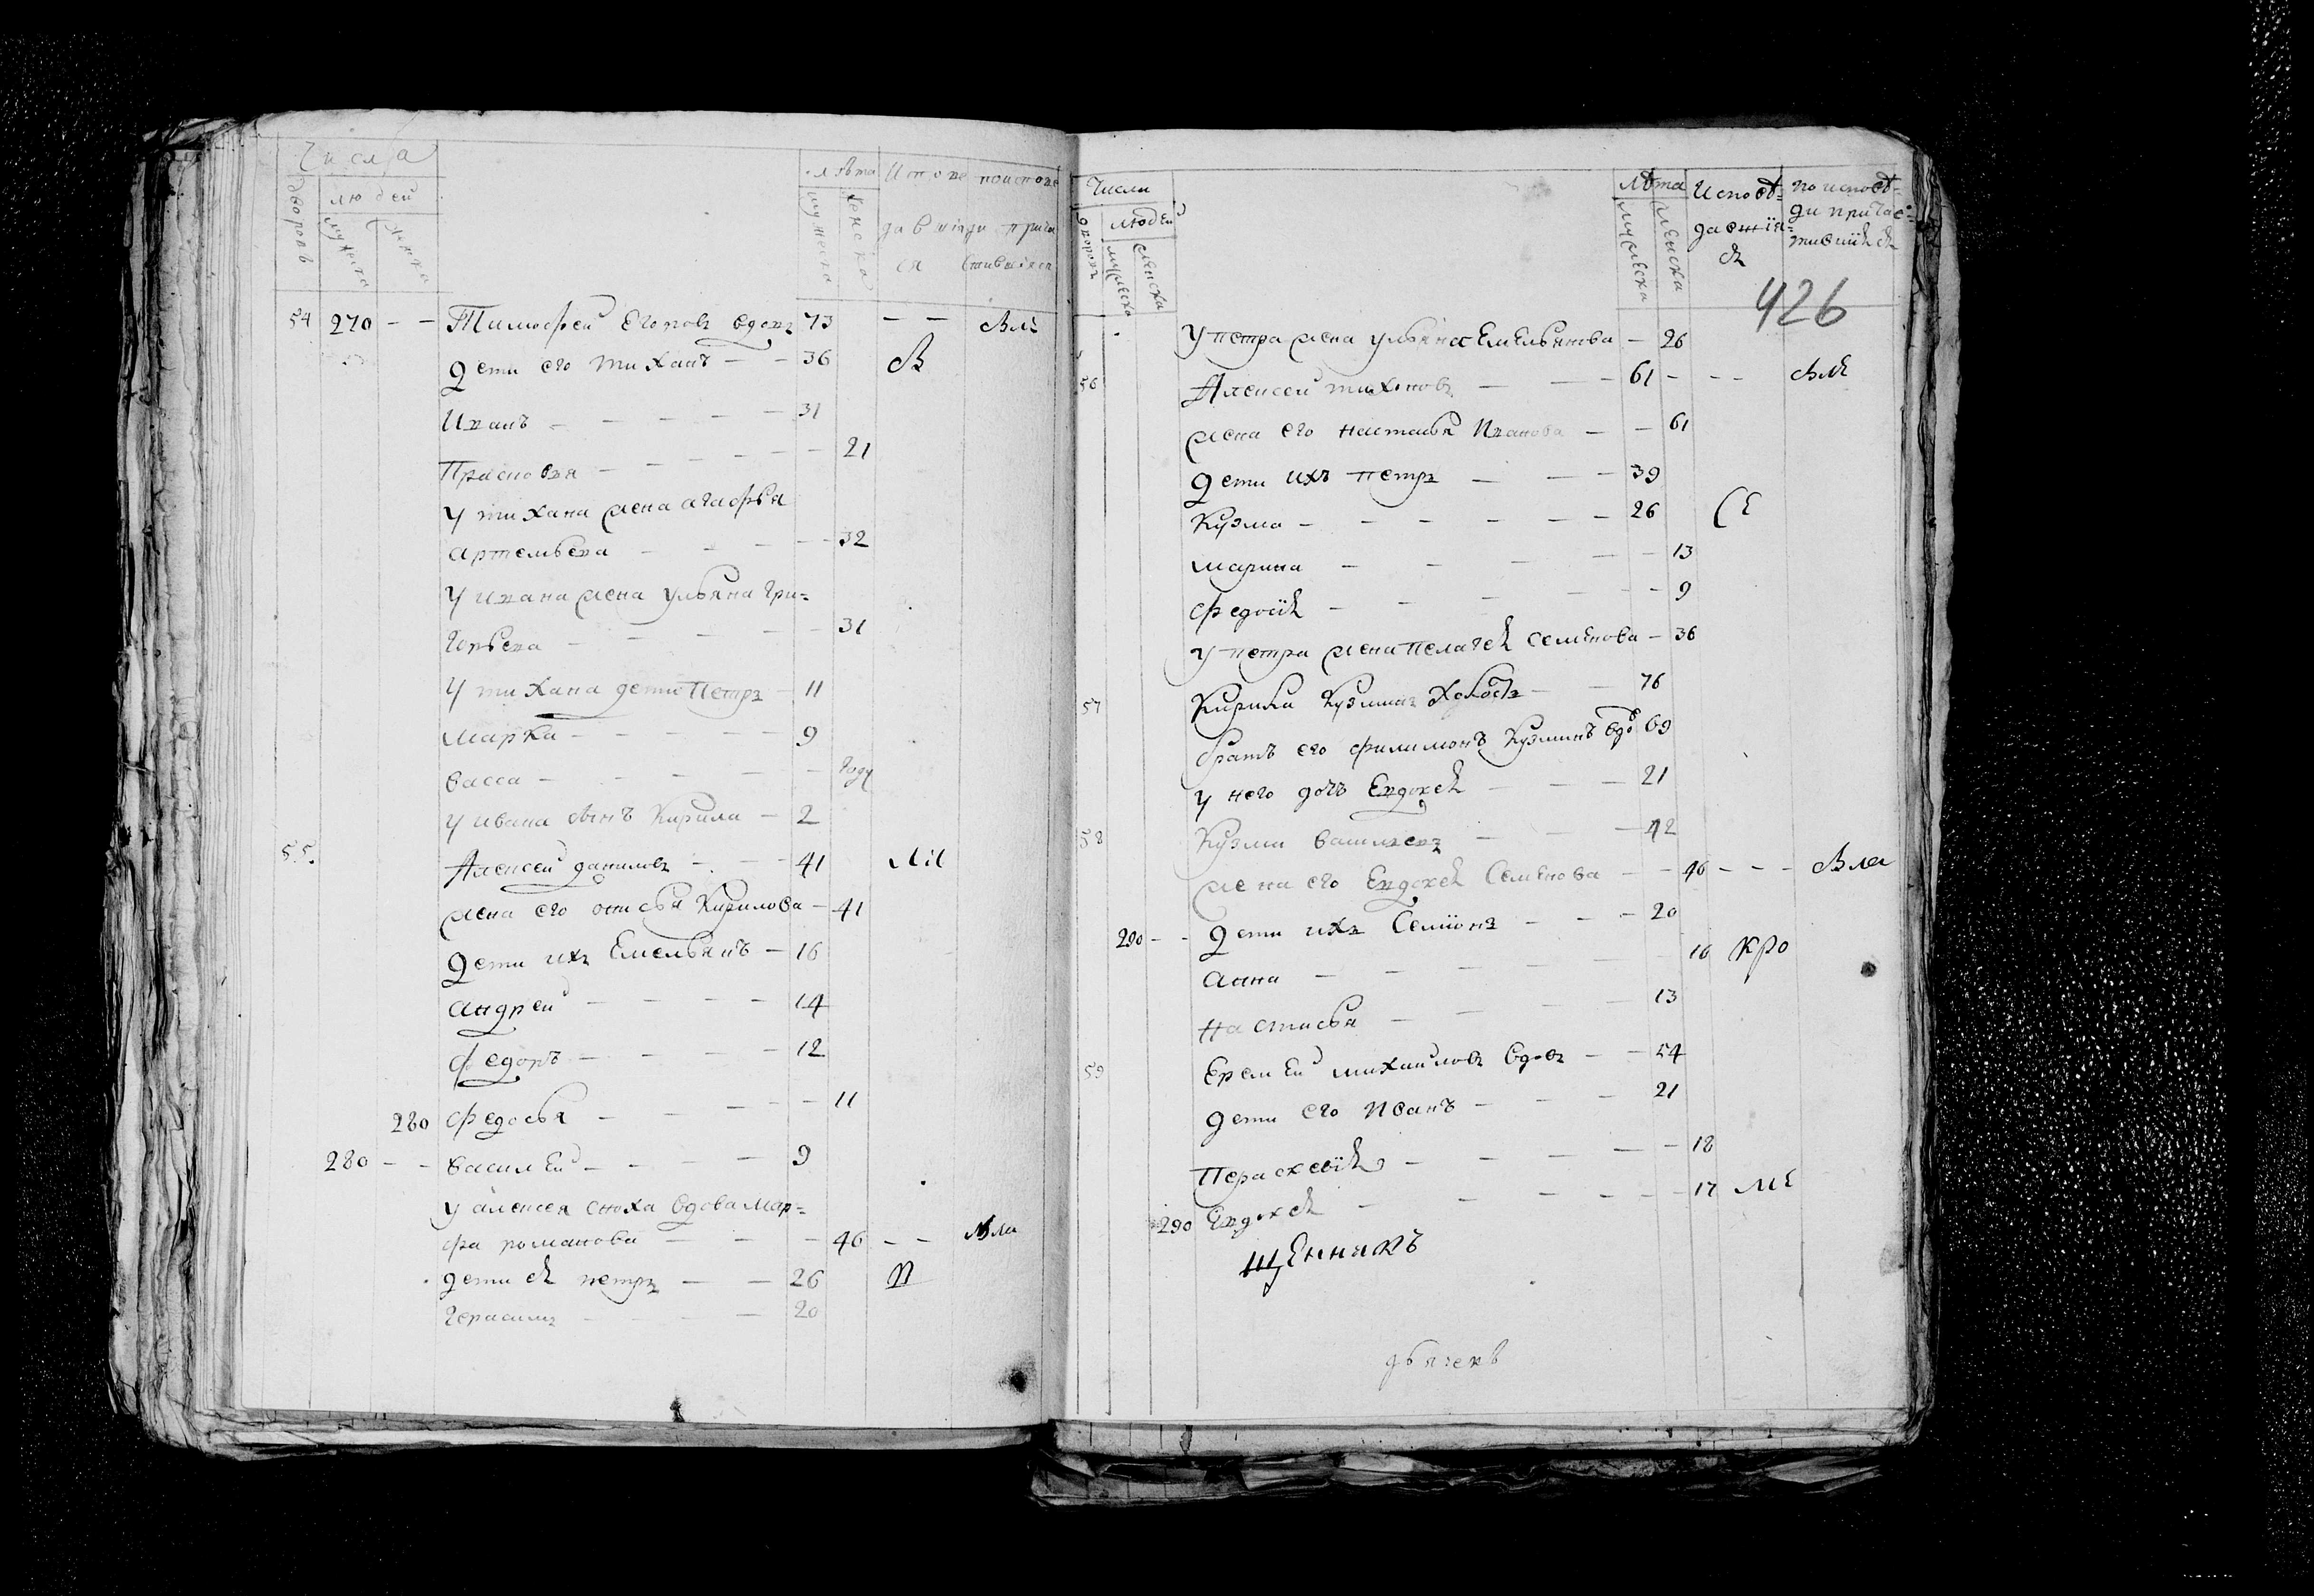 Числа
дворовъ
людей
мужеска
женска
лѣта
мужеска
женска
Испове
давшiи
ся
поиспове
ди прича
стившiися
54 270 - - Тимофеи Егоровъ вдовъ 73 - -
дети его тиханъ - - 36
Иванъ - - - - - 31
Прасковья - - - - - - 21
У тихана жена агафья
артемьева - - - - - 32
У ивана жена ульяна гри=
горьева - - - - - 31
У тихана дети Петръ - 11
марка - - - - - 9
васса - - - - - году
у ивана сынъ Кирила - 2
55. Алексеи даниловъ - - - 41
жена его Кирилова - 41
дети ихъ Емельянъ - 16
андреи - - - - 14
федоръ - - - - 12
280 федосья - - - - - 11
280 - - василеи - - - - 9
у алексея сноха вдова мар=
фа романова - - - 46 - -
дети ея петръ - - 26
герасимъ - - - 20
Числа
дворовъ
людеи
мужеска
женска
лѣта
мужеска
женска
Исповѣ=
давшiи=
ся
по исповѣ=
ди причас=
тившiися
426
У петра жена ульяна Емельянова - 26
56 Алексеи тихоновъ - - - 61 - - -
жена его настасья Иванова - - 61
дети ихъ петръ - - - 39
Кузма - - - - - - 26
марина - - - - - 13
федосiя - - - - - - 9
у петра жена пелагея семенова - 36
57 Кирила Кузминъ холостъ - - 76
братъ его филимонъ Кузминъ вдо 69
у него дочь Евдокея - - - 21
58 Кузма василевъ - - - 42
жена его Евдокея Семенова - - 40 - - -
290 - - дети ихъ Семiонъ - - - 20
анна - - - - - 16 кро
настасья - - - - 13
59 Еремеи михаиловъ вдовъ - - 54
дети его Иванъ - - - 21
Параскевiя - - - - - 18
290 Евдокея - - - - - - 17
щенникъ
дьячекъ